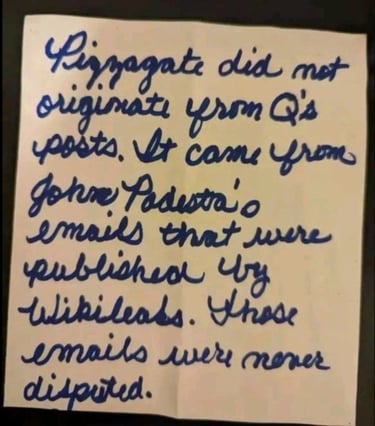 Pizzagate did not
originate from Q's
posts. It came from
John Podesta's
emails that were
published by
Wikileaks. Those
emails were never
disputed.